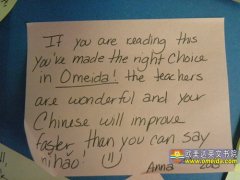 If you are reading this
you've made the right choice
in Omeida! the teachers
are wonderful and your
Chinese will improve
faster than you can say
nǐhǎo!
Anna
欧美达英文书院
www.omeida.com